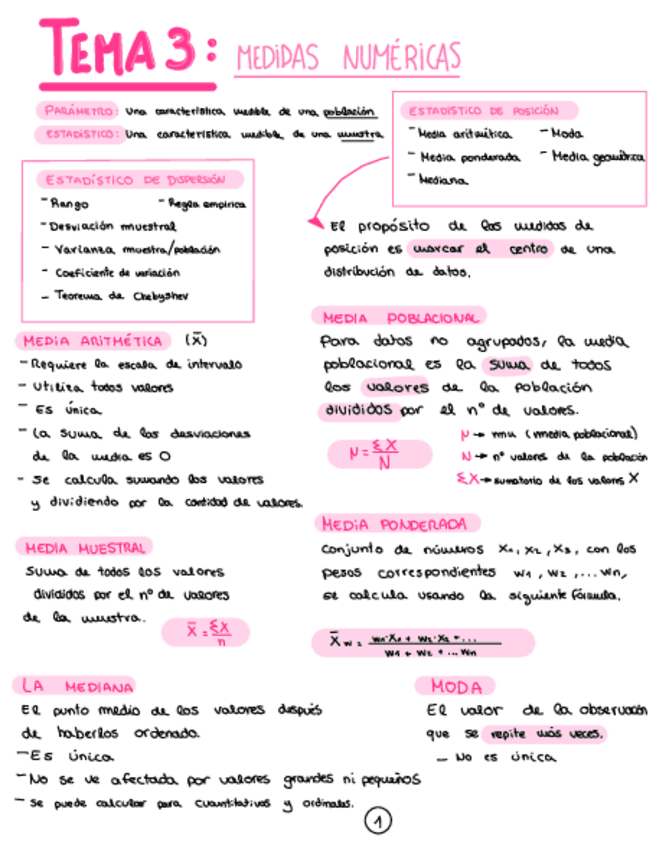 TEMA 3: MEDIDAS NUMÉRICAS
PARÁMETRO: Una característica medible de una población
ESTADÍSTICO: Una característica medible de una muestra
ESTADÍSTICO DE POSICIÓN
- Media aritmética - Moda
- Media ponderada - Media geométrica
- Mediana
ESTADÍSTICO DE DISPERSIÓN
- Rango - Regla empírica
- Desviación muestral
- Varianza muestra/población
- Coeficiente de variación
- Teorema de Chebyshev
El propósito de las medidas de
posición es marcar el centro de una
distribución de datos.
MEDIA ARITMÉTICA (X̄)
- Requiere la escala de intervalo
- Utiliza todos valores
- Es única
- La suma de las desviaciones
de la media es 0
- Se calcula sumando los valores
y dividiendo por la cantidad de valores.
MEDIA POBLACIONAL
Para datos no agrupados, la media
poblacional es la suma de todos
los valores de la población
divididos por el nº de valores.
μ = ΣX/N
μ → mu (media poblacional)
N → nº valores de la población
ΣX → sumatorio de los valores X
MEDIA MUESTRAL
Suma de todos los valores
divididos por el nº de valores
de la muestra.
X̄ = ΣX/n
MEDIA PONDERADA
Conjunto de números X₁, X₂, X₃, con los
pesos correspondientes W₁, W₂, ... Wn,
se calcula usando la siguiente fórmula.
X̄w = W₁·X₁ + W₂·X₂ + ... / W₁ + W₂ + ... Wn
LA MEDIANA
El punto medio de los valores después
de haberlos ordenado.
- Es única
- No se ve afectada por valores grandes ni pequeños
- Se puede calcular para cuantitativas y ordinales.
MODA
El valor de la observación
que se repite más veces.
- No es única
1